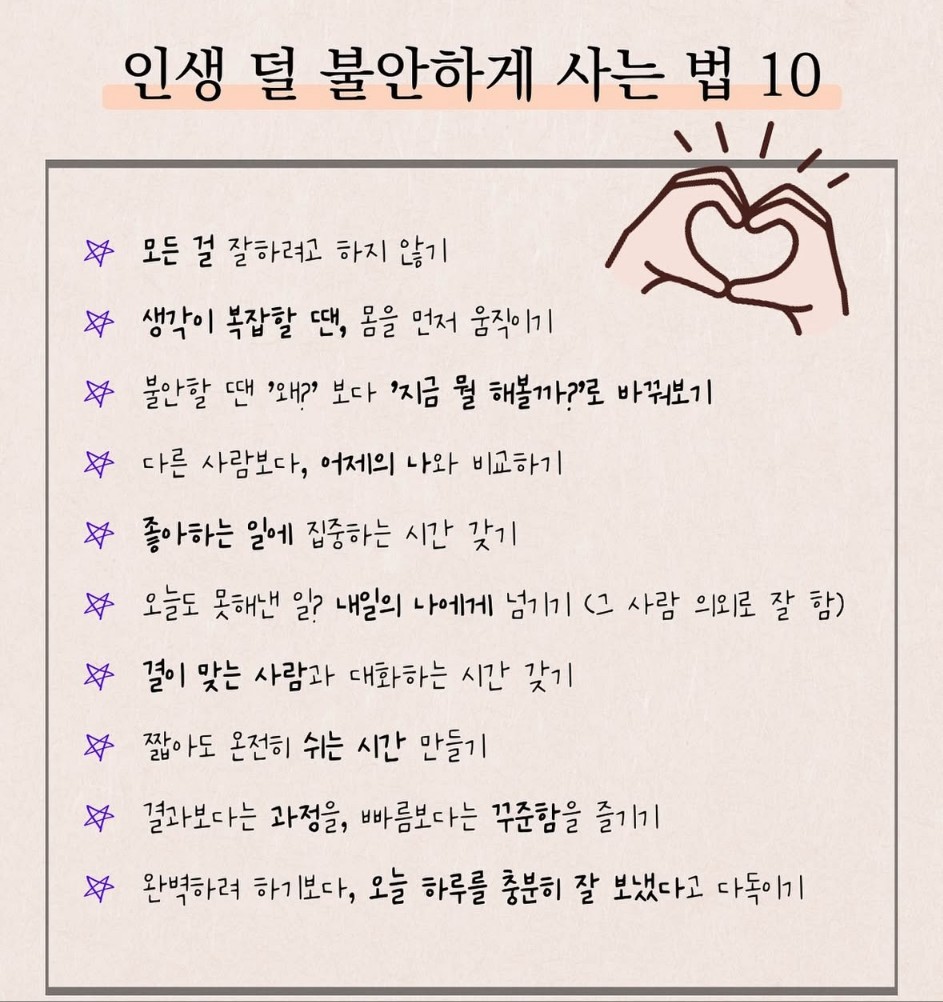 인생 덜 불안하게 사는 법 10
모든 걸 잘하려고 하지 않기
생각이 복잡할 땐, 몸을 먼저 움직이기
불안할 땐 '왜?' 보다 '지금 뭘 해볼까?'로 바꿔보기
다른 사람보다, 어제의 나와 비교하기
좋아하는 일에 집중하는 시간 갖기
오늘도 못해낸 일? 내일의 나에게 넘기기 (그 사람 의외로 잘 함)
결이 맞는 사람과 대화하는 시간 갖기
짧아도 온전히 쉬는 시간 만들기
결과보다는 과정을, 빠름보다는 꾸준함을 즐기기
완벽하려 하기보다, 오늘 하루를 충분히 잘 보냈다고 다독이기